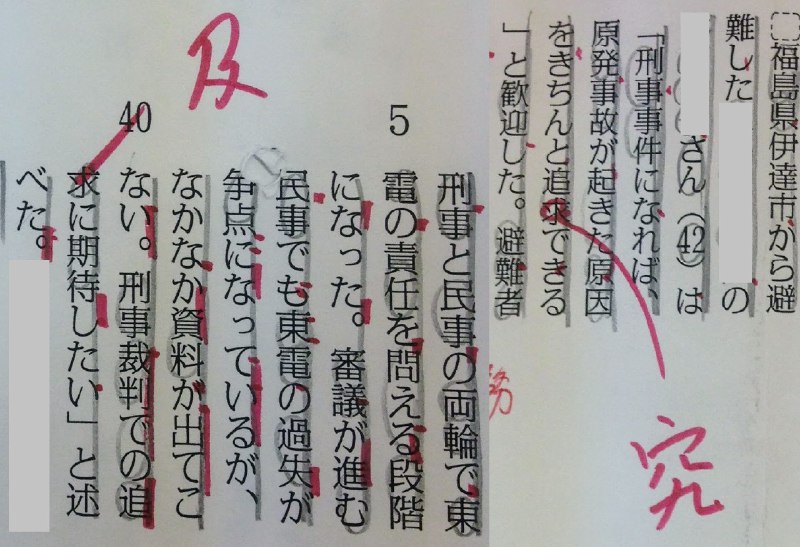 福島県伊達市から避
難した の
さん(42)は
「刑事事件になれば、
原発事故が起きた原因
をきちんと追求できる
」と歓迎した。避難者
究
5
刑事と民事の両輪で東
電の責任を問える段階
になった。審議が進む
民事でも東電の過失が
争点になっているが、
なかなか資料が出てこ
ない。刑事裁判での追
求に期待したい」と述
べた。
40
及